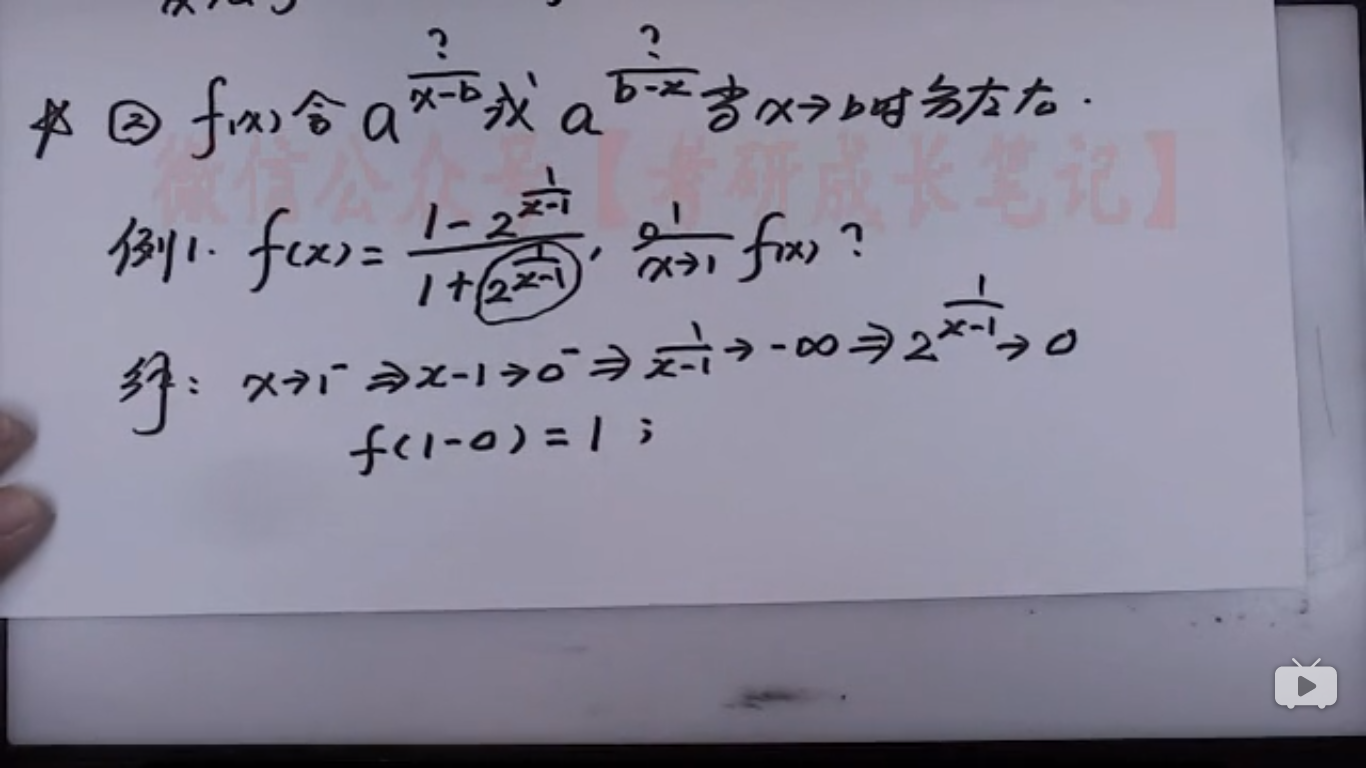 ☆ ② f(x)含 a^{?/(x-b)} 或 a^{?/(b-x)} 当 x→b时分左右.
微信公众号【考研成长笔记】
例1. f(x) = (1-2^{1/(x-1)})/(1+2^{1/(x-1)}), x→1 f(x)?
解: x→1⁻ ⇒ x-1→0⁻ ⇒ 1/(x-1) → -∞ ⇒ 2^{1/(x-1)} → 0
f(1-0) = 1 ;